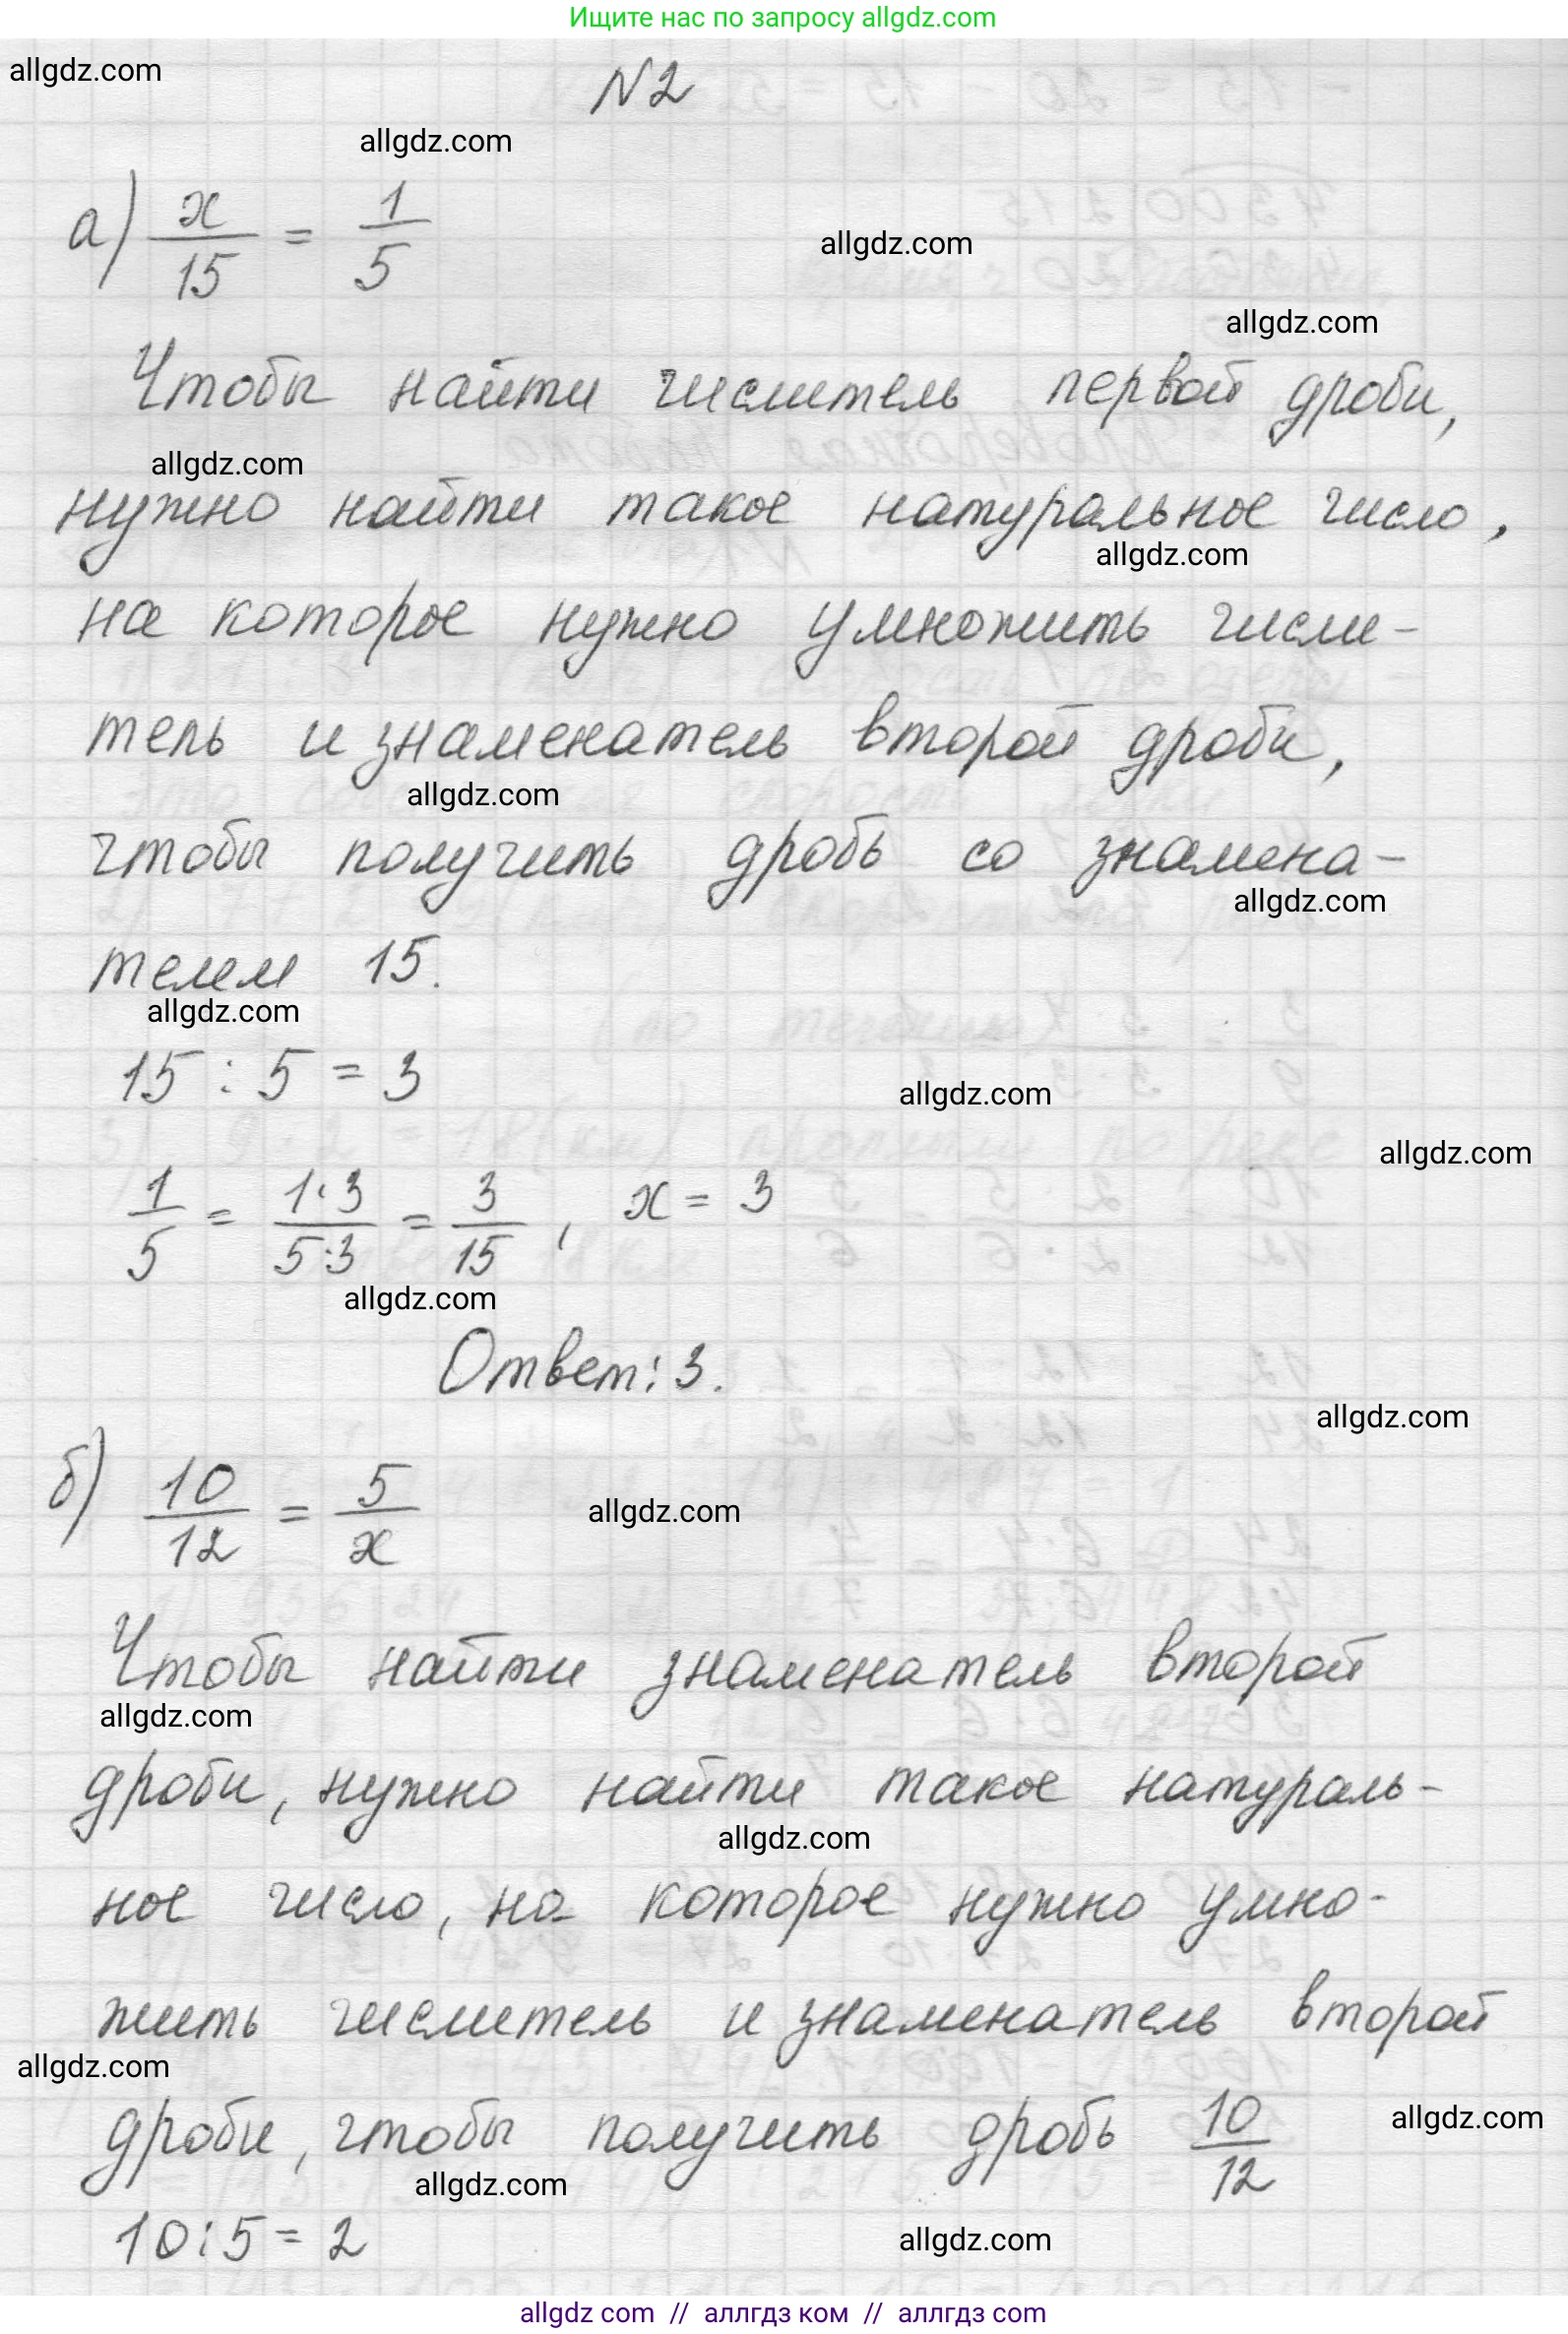 Ищите нас по запросу allgdz.com
allgdz.com
N2
allgdz.com
а) x/15 = 1/5
allgdz.com
allgdz.com
Чтобы найти числитель первой дроби,
allgdz.com
нужно найти такое натуральное число,
allgdz.com
на которое нужно умножить числи-
тель и знаменатель второй дроби,
allgdz.com
чтобы получить дробь со знамена-
allgdz.com
телем 15.
allgdz.com
15 : 5 = 3
allgdz.com
allgdz.com
1/5 = 1·3/5·3 = 3/15 , x = 3
allgdz.com
Ответ: 3.
allgdz.com
б) 10/12 = 5/x
allgdz.com
Чтобы найти знаменатель второй
allgdz.com
дроби, нужно найти такое натураль-
allgdz.com
ное число, на которое нужно умно-
жить числитель и знаменатель второй
allgdz.com
дроби, чтобы получить дробь 10/12
allgdz.com
allgdz.com
10:5 = 2
allgdz.com
allgdz com // аллгдз ком // аллгдз com